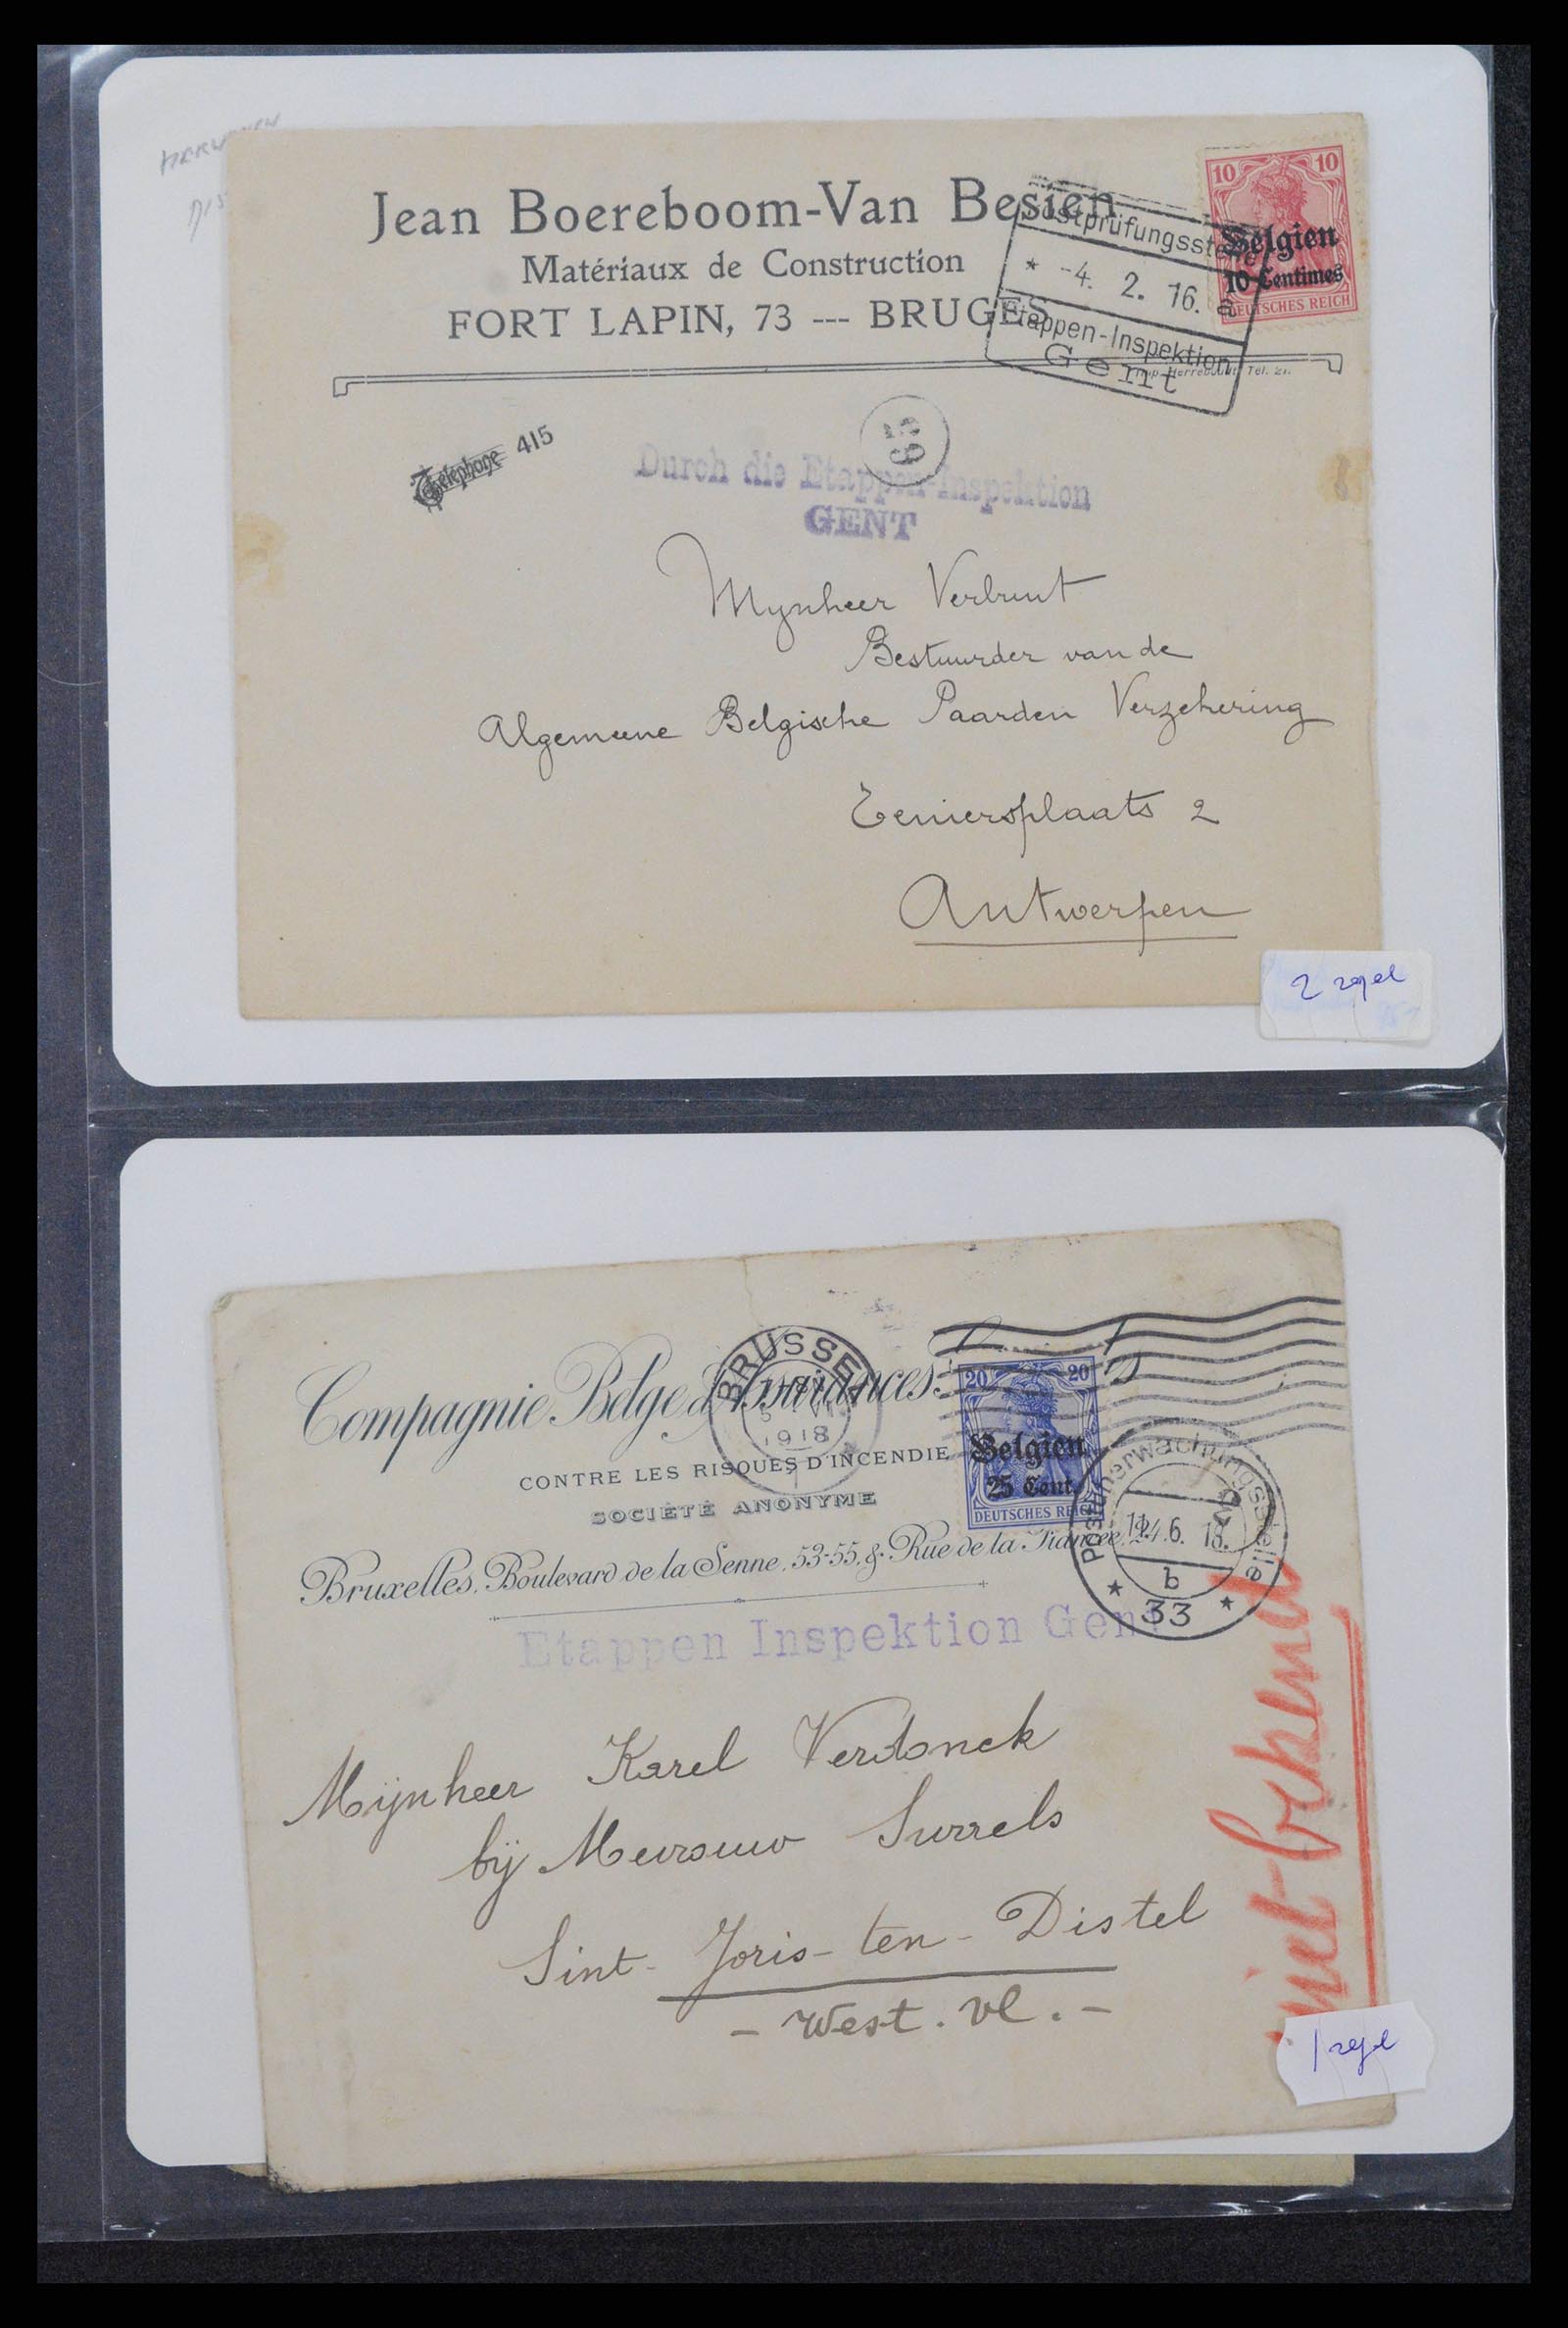 Jean Boereboom-Van Besien
Matériaux de Construction
FORT LAPIN, 73 --- BRUGES
Postprüfungsstelle
* -4. 2. 16. a
Etappen-Inspektion
Gent
10 10
Belgien
10 Centimes
DEUTSCHES REICH
Imp. Herreboudt, Tel. 21.
Telephone 415
65
Durch die Etappen-Inspektion
GENT
Mynheer
Bestuurder van de
Algemeene Belgische Paarden Verzekering
Teniersplaats 2
Antwerpen
2 regel
BRUSSEL
1918
Compagnie Belge d'Assurances
CONTRE LES RISQUES D'INCENDIE
SOCIÉTÉ ANONYME
Bruxelles, Boulevard de la Senne, 53-55, & Rue de la Fiancée,
20 20
Belgien
25 Cent.
DEUTSCHES REICH
Postüberwachungsstelle
6. 18.
b
* 33 *
Etappen Inspektion Gent
Mijnheer Karel Verdonck
bij Mevrouw
Sint-Joris-ten-Distel
- West. Vl. -
niet bekend
1 regel